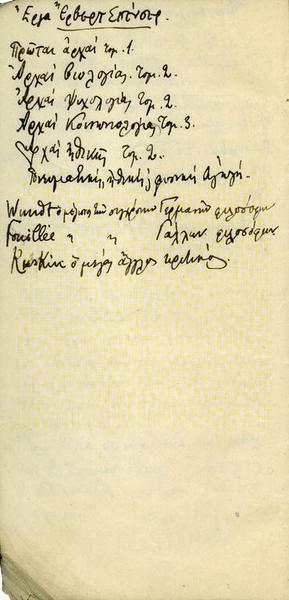 Ἔργα Ἕρβερτ Σπένσερ.
Πρῶται ἀρχαὶ τομ. 1.
Ἀρχαὶ βιολογίας τομ. 2.
Ἀρχαὶ ψυχολογίας τομ. 2.
Ἀρχαὶ Κοινωνιολογίας τομ. 3.
Ἀρχαὶ ἠθικῆς τομ. 2.
Πνευματική, ἠθική, φυσική Ἀγωγή.
Wundt ὁ μέγιστος τῶν συγχρόνων Γερμανῶν φιλοσόφων
Fouillée " " Γάλλων φιλοσόφων
Ruskin ὁ μέγας ἄγγλος κριτικός.